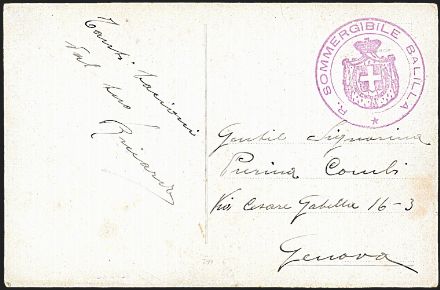 Tanti bacioni
dal tuo
R. SOMMERGIBILE BALILLA
Gentil Signorina
Pierina Combi
Via Cesare Gabella 16-3
Genova